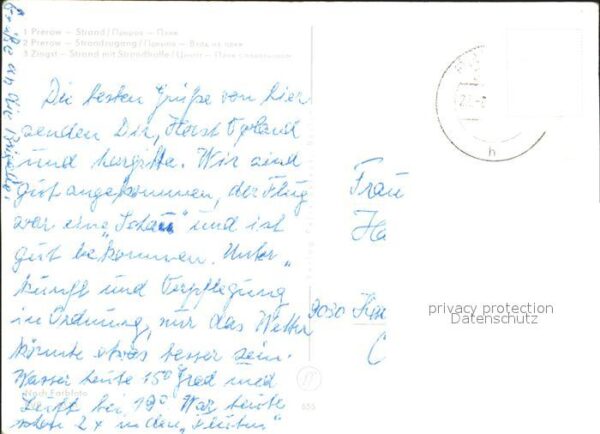 1 Prerow — Strand / Преров — Пляж
2 Prerow — Strandzugang / Преров — Вход на пляж
3 Zingst — Strand mit Strandhalle / Цингст — Пляж с павильоном
Grüße an die Brigade!
Die besten Grüße von hier
senden Dir, Horst
und Margitta. Wir sind
gut angekommen, der Flug
war eine „Schau" und ist
gut bekommen. Unter„
kunft und Verpflegung
in Ordnung, nur das Wetter
könnte etwas besser sein.
Wasser heute 15° Grad und
Luft bei 19°. War heute
schon 2x in den „Fluten"
Nach Farbfoto
555
Frau
Ha
9030
C
h
privacy protection
Datenschutz